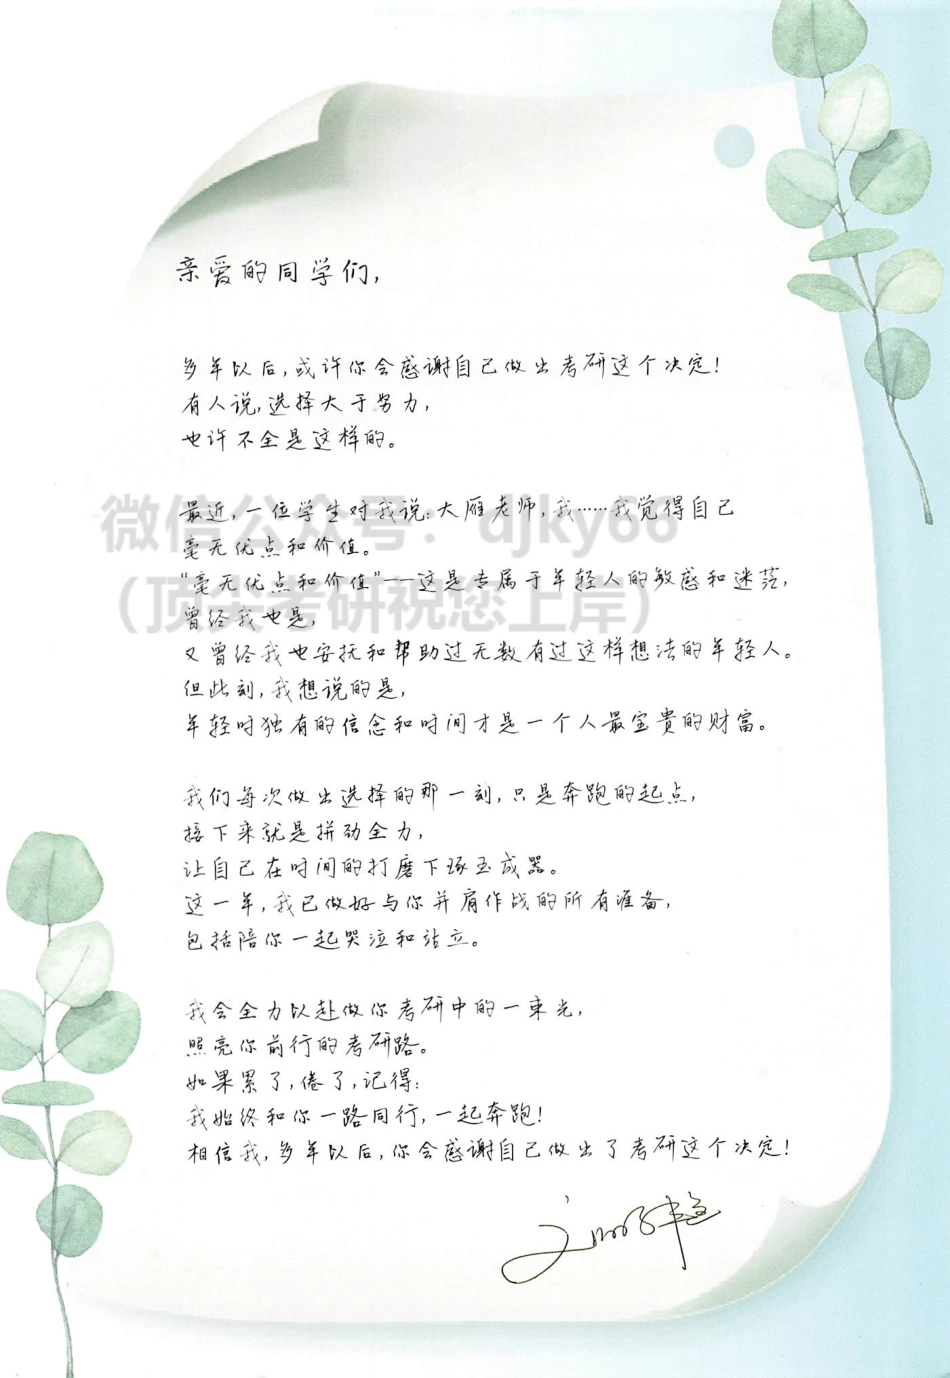 亲爱的同学们,
多年以后,或许你会感谢自己做出考研这个决定!
有人说,选择大于努力,
也许不全是这样的。
最近,一位学生对我说:大雁老师,我……我觉得自己
毫无优点和价值。
“毫无优点和价值”——这是专属于年轻人的敏感和迷茫,
曾经我也是,
又曾经我也安抚和帮助过无数有过这样想法的年轻人。
但此刻,我想说的是,
年轻时独有的信念和时间才是一个人最宝贵的财富。
我们每次做出选择的那一刻,只是奔跑的起点,
接下来就是拼劲全力,
让自己在时间的打磨下琢玉成器。
这一年,我已做好与你并肩作战的所有准备,
包括陪你一起哭泣和站立。
我会全力以赴做你考研中的一束光,
照亮你前行的考研路。
如果累了,倦了,记得:
我始终和你一路同行,一起奔跑!
相信我,多年以后,你会感谢自己做出了考研这个决定!
微信公众号：djky66
（顶尖考研祝您上岸）